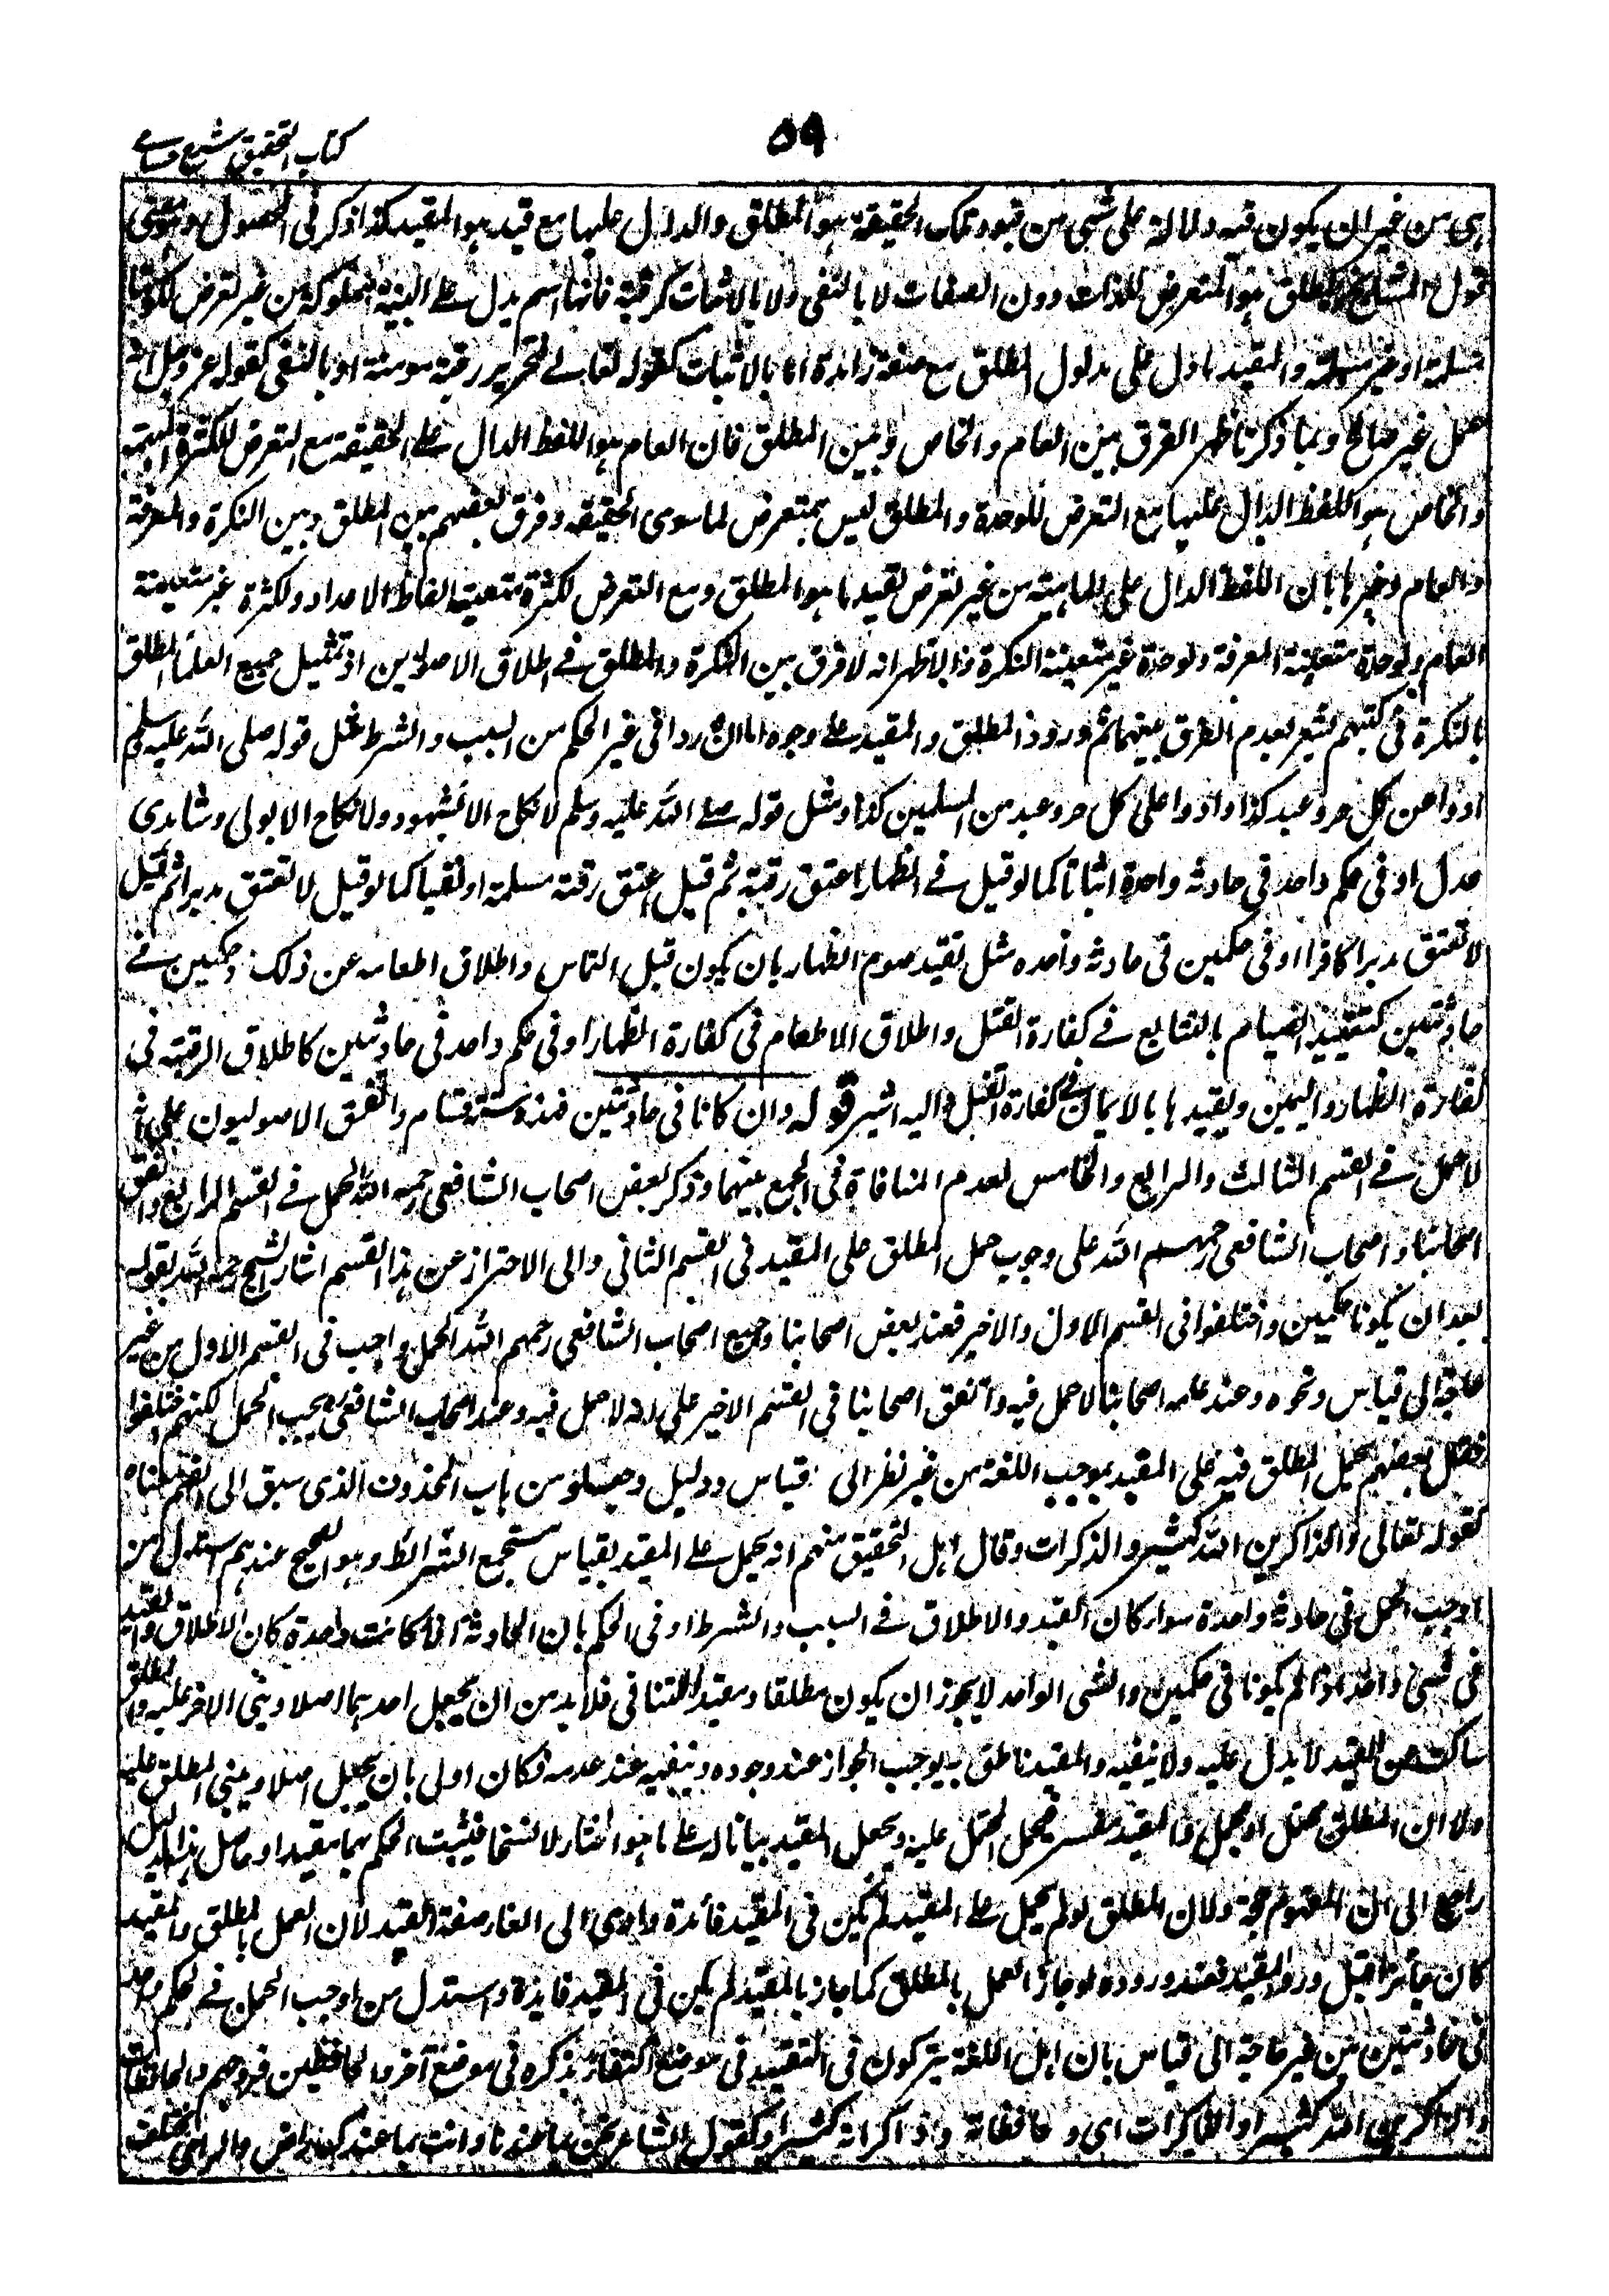 ٥٩
كتاب التحقيق شرح حسامي
هي من غير ان يكون فيه دلالة على شئ من قيود تلك الحقيقة هو المطلق والدال عليها مع قيد هو المقيد كذا ذكر في المحصول وهو معنى
قول المشايخ المطلق هو المتعرض للذات دون الصفات لا بالنفي ولا بالاثبات كرقبة فانها اسم يدل على البنية مملوكة من غير تعرض لكونها
مسلمة او غير مسلمة والمقيد ما دل على مدلول المطلق مع صفة زائدة اما بالاثبات كقوله تعالى فتحرير رقبة مومنة او بالنفي كقوله عز وجل انه
عمل غير صالح وبما ذكرنا ظهر الفرق بين العام والخاص وبين المطلق فان العام هو اللفظ الدال على الحقيقة مع التعرض للكثرة
والخاص هو اللفظ الدال عليها مع التعرض للوحدة والمطلق ليس بمتعرض لما سوى الحقيقة وفرق بعضهم بين المطلق وبين النكرة والمعرفة
والعام وغيرها بان اللفظ الدال على الماهية من غير تعرض لقيد ما هو المطلق ومع التعرض لكثرة متعينة الفاظ الاعداد ولكثرة غير متعينة
العام ولوحدة متعينة المعرفة ولوحدة غير متعينة النكرة والاظهر انه لا فرق بين النكرة والمطلق في اطلاق الاصوليين اذ تمثيل جميع العلماء المطلق
بالنكرة في كتبهم يشعر بعدم الفرق بينهما ثم ورود المطلق والمقيد على وجوه اما ان وردا في غير الحكم من السبب والشرط مثل قوله صلى الله عليه وسلم
ادوا عن كل حر وعبد كذا وادوا على كل حر وعبد من المسلمين كذا ومثل قوله صلى الله عليه وسلم لا نكاح الا بشهود ولا نكاح الا بولي وشاهدي
عدل او في حكم واحد في حادثة واحدة اثباتا كما لو قيل في الظهار اعتق رقبة ثم قيل اعتق رقبة مسلمة او نفيا كما لو قيل لا تعتق مدبرا ثم قيل
لا تعتق مدبرا كافرا او في حكمين في حادثة واحده مثل تقييد صوم الظهار بان يكون قبل التماس واطلاق اطعامه عن ذلك وحكمين في
حادثتين كتقييد الصيام بالتتابع في كفارة القتل واطلاق الاطعام في كفارة الظهار او في حكم واحد في حادثتين كاطلاق الرقبة في
كفارة الظهار واليمين وتقييدها بالايمان في كفارة القتل واليه اشير قوله وان كانا في حادثتين فهذه ستة اقسام واتفق الاصوليون على انه
لا حمل في القسم الثالث والرابع والخامس لعدم المنافاة في الجمع بينهما وذكر بعض اصحاب الشافعي رحمه الله الحمل في القسم الرابع واتفق
اصحابنا واصحاب الشافعي رحمهم الله على وجوب حمل المطلق على المقيد في القسم الثاني والى الاحتراز عن هذا القسم اشار الشيخ رحمه الله بقوله
بعد ان يكونا حكمين واختلفوا في القسم الاول والاخير فعند بعض اصحابنا وجميع اصحاب الشافعي رحمهم الله الحمل واجب في القسم الاول من غير
حاجة الى قياس ونحوه وعند عامة اصحابنا لا حمل فيه واتفق اصحابنا في القسم الاخير على انه لا حمل فيه وعند اصحاب الشافعي يجب الحمل لكنهم اختلفوا
فقال بعضهم يحمل المطلق فيه على المقيد بموجب اللغة من غير نظر الى قياس ودليل وجعلوه من باب المحذوف الذي سبق الى الفهم معناه
كقوله تعالى والذاكرين الله كثيرا والذكرات وقال اهل التحقيق منهم انه يحمل على المقيد بقياس مستجمع الشرائط وهو الصحيح عندهم استدل من
اوجب الحمل في حادثة واحدة سواء كان القيد والاطلاق في السبب والشرط او في الحكم بان الحادثة اذا كانت واحدة كان الاطلاق والقيد
في شئ واحد اذا لم يكونا في حكمين والشى الواحد لا يجوز ان يكون مطلقا ومقيدا للتنافي فلا بد من ان يجعل احدهما اصلا ويبنى الاخر عليه والمطلق
ساكت عن القيد لا يدل عليه ولا ينفيه والمقيد ناطق به يوجب الجواز عند وجوده وينفيه عند عدمه فكان اولى بان يجعل اصلا ويبنى المطلق عليه
ولان المطلق محتمل او مجمل والمقيد مفسر فيحمل المحتمل عليه ويجعل المقيد بيانا له على ما هو المختار لا نسخا فيثبت الحكم بهما مقيدا وحاصل هذا الدليل
راجع الى ان المفهوم حجة ولان المطلق لو لم يحمل على المقيد لم يكن في المقيد فائدة وادى الى الغاء صفة القيد لان العمل بالمطلق والمقيد
كان جائزا قبل ورود المقيد فعند وروده لو جاز العمل بالمطلق كما جاز بالمقيد لم يكن في المقيد فائدة واستدل من اوجب الحمل في حكم واحد
في حادثتين من غير حاجة الى قياس بان اهل اللغة يتركون في التقييد في موضع اكتفاء بذكره في موضع آخر والحافظين فروجهم والحافظات
والذاكرين الله كثيرا والذاكرات اى وحافظاته وذاكراته كثيرا وكقول الشاعر نحن بما عندنا وانت بما عندك راض والراي مختلف